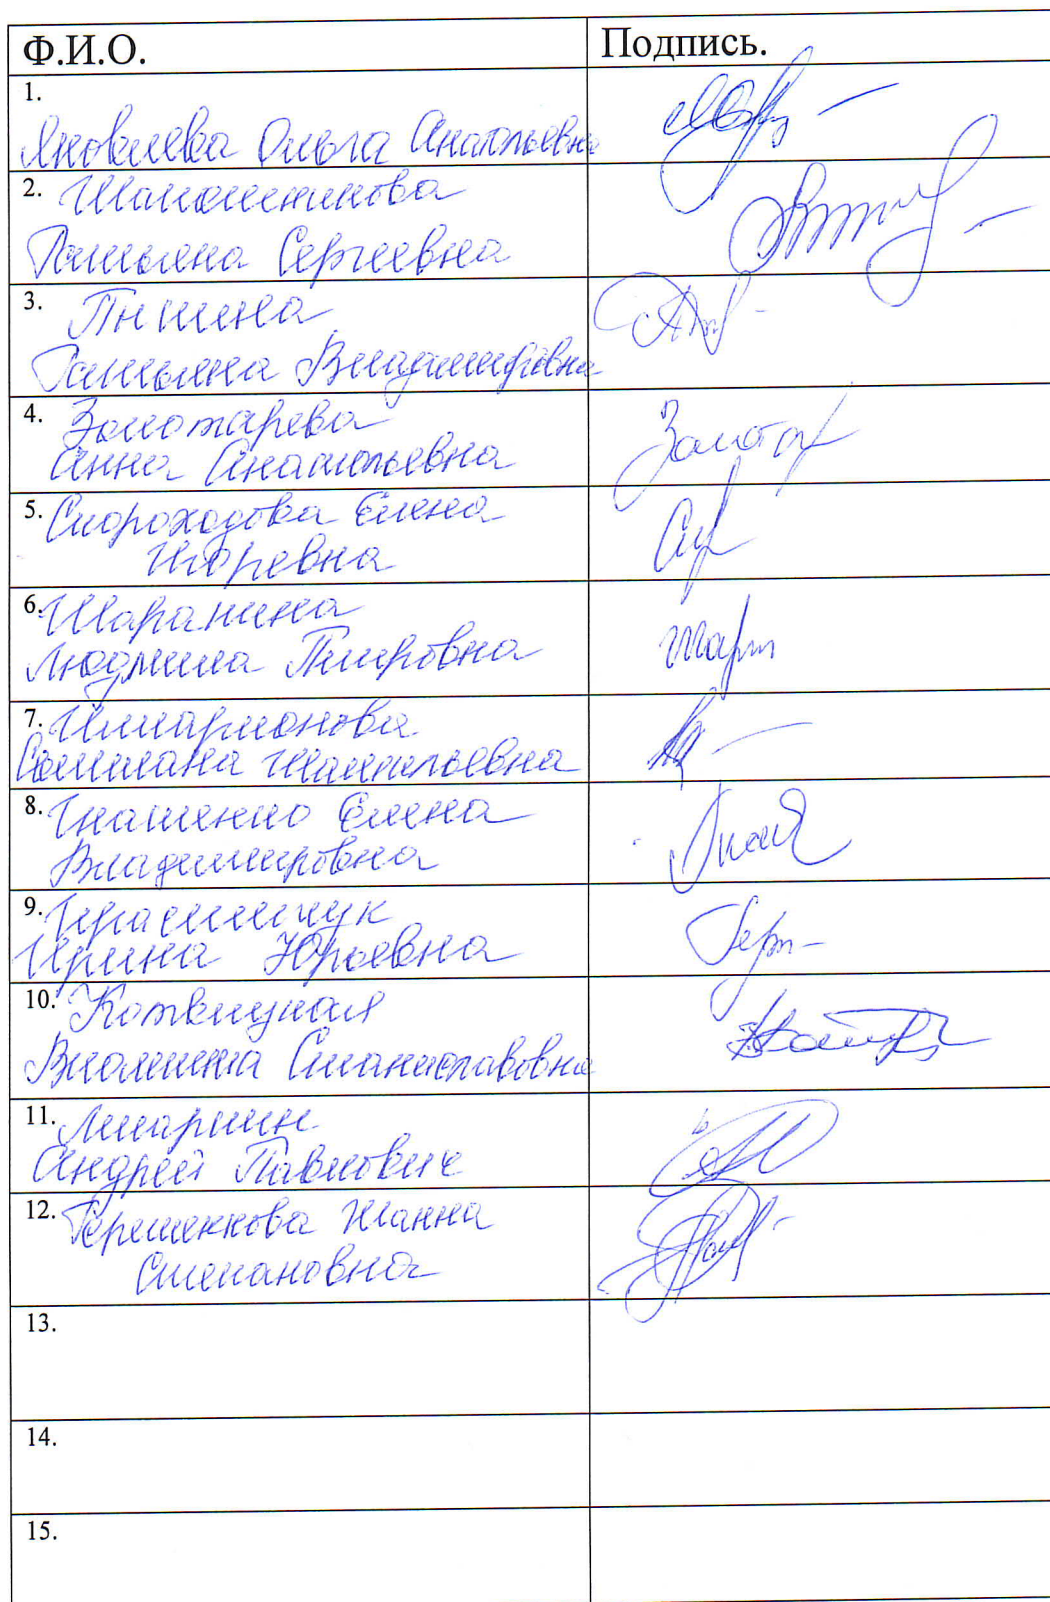 Ф.И.О.
Подпись.
1.
Яковлева Ольга Анатольевна
2. Шапошникова
Татьяна Сергеевна
3. Пнина
Татьяна Владимировна
4. Золотарева
Анна Анатольевна
Золотар
5. Скороходова Елена
Игоревна
6. Шаранина
Людмила Пировна
Шар
7. Илларионова
8. Игнатенко Елена
Владимировна
9. Герасимчук
Ирина Юрьевна
Гер
10. Котвицкая
Виолетта Станиславовна
11.
Андрей Павлович
12. Терешенкова Жанна
Степановна
13.
14.
15.